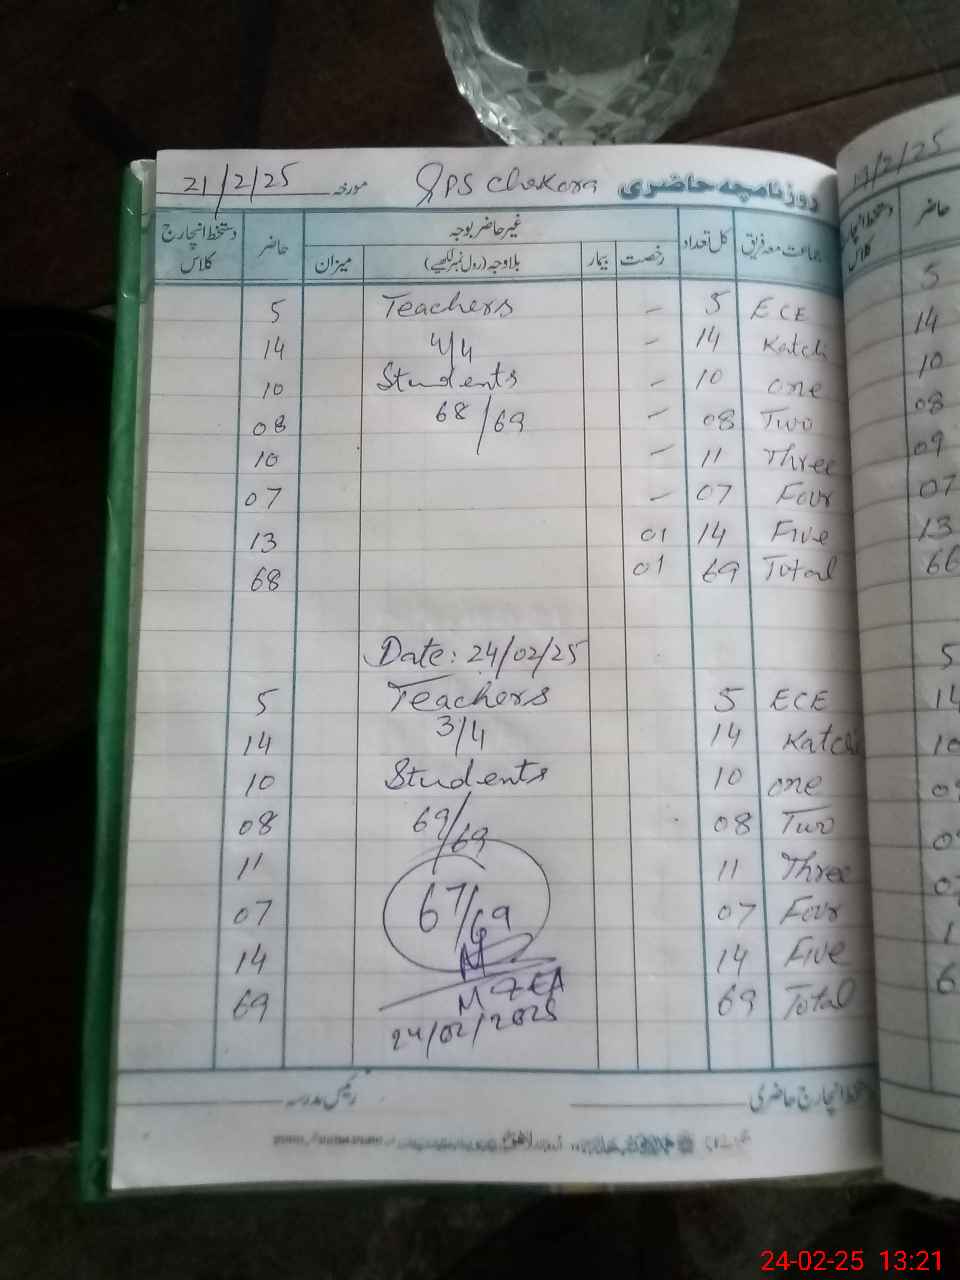 21/2/25 مورخہ GPS Chakora روزنامچہ حاضری
جماعت معہ فریق کل تعداد غیر حاضر بوجہ حاضر دستخط انچارج کلاس
رخصت بیمار بلاوجہ (رول نمبر لکھیے) میزان
5 Teachers - 5 ECE
14 4/4 - 14 Katchi
10 Students - 10 one
08 68/69 - 08 Two
10 - 11 Three
07 - 07 Four
13 01 14 Five
68 01 69 Total
Date: 24/02/25
5 Teachers 5 ECE
14 3/4 14 Katchi
10 Students 10 one
08 69/69 08 Two
11 11 Three
07 67/69 07 Four
14 14 Five
69 MZEA 69 Total
24/02/2025
دستخط انچارج حاضری رئیس مدرسہ
19/2/25
حاضر دستخط انچارج کلاس
5
14
10
08
09
07
13
66
5
14
10
24-02-25 13:21